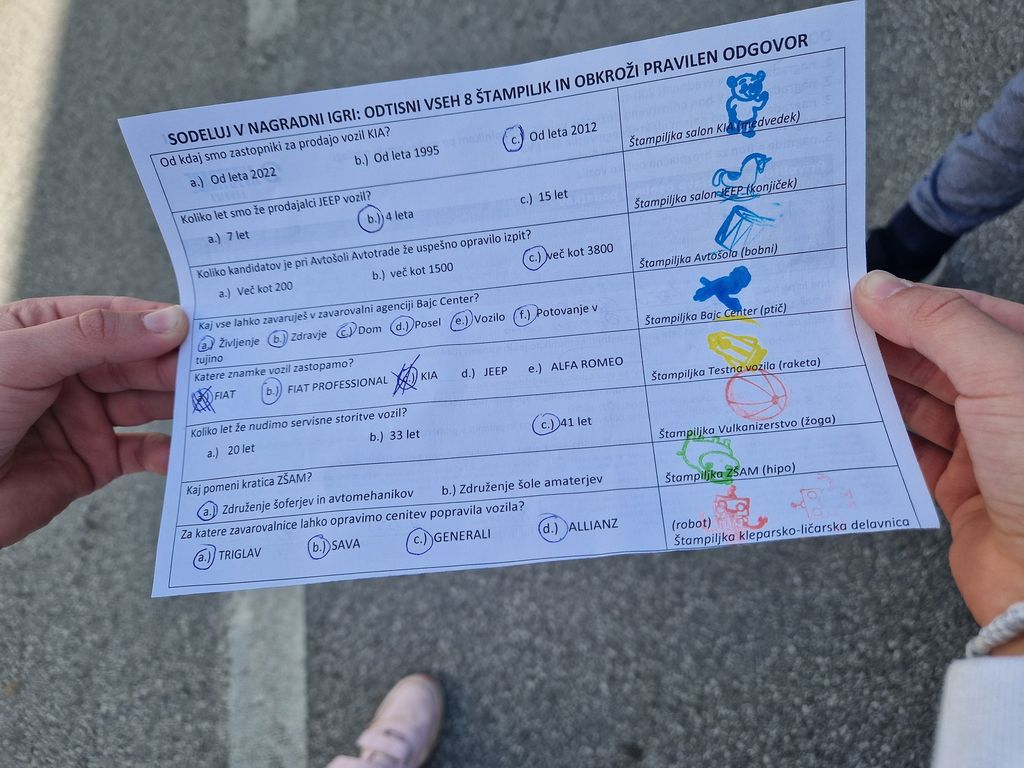 SODELUJ V NAGRADNI IGRI: ODTISNI VSEH 8 ŠTAMPILJK IN OBKROŽI PRAVILEN ODGOVOR
Od kdaj smo zastopniki za prodajo vozil KIA?
a.) Od leta 2022 b.) Od leta 1995 c.) Od leta 2012
Štampiljka salon KIA (medvedek)
Koliko let smo že prodajalci JEEP vozil?
a.) 7 let b.) 4 leta c.) 15 let
Štampiljka salon JEEP (konjiček)
Koliko kandidatov je pri Avtošoli Avtotrade že uspešno opravilo izpit?
a.) Več kot 200 b.) več kot 1500 c.) več kot 3800
Štampiljka Avtošola (bobni)
Kaj vse lahko zavaruješ v zavarovalni agenciji Bajc Center?
a.) Življenje b.) Zdravje c.) Dom d.) Posel e.) Vozilo f.) Potovanje v
tujino
Štampiljka Bajc Center (ptič)
Katere znamke vozil zastopamo?
a.) FIAT b.) FIAT PROFESSIONAL c.) KIA d.) JEEP e.) ALFA ROMEO
Štampiljka Testna vozila (raketa)
Koliko let že nudimo servisne storitve vozil?
a.) 20 let b.) 33 let c.) 41 let
Štampiljka Vulkanizerstvo (žoga)
Kaj pomeni kratica ZŠAM?
a.) Združenje šoferjev in avtomehanikov b.) Združenje šole amaterjev
Štampiljka ZŠAM (hipo)
Za katere zavarovalnice lahko opravimo cenitev popravila vozila?
a.) TRIGLAV b.) SAVA c.) GENERALI d.) ALLIANZ
(robot)
Štampiljka kleparsko-ličarska delavnica